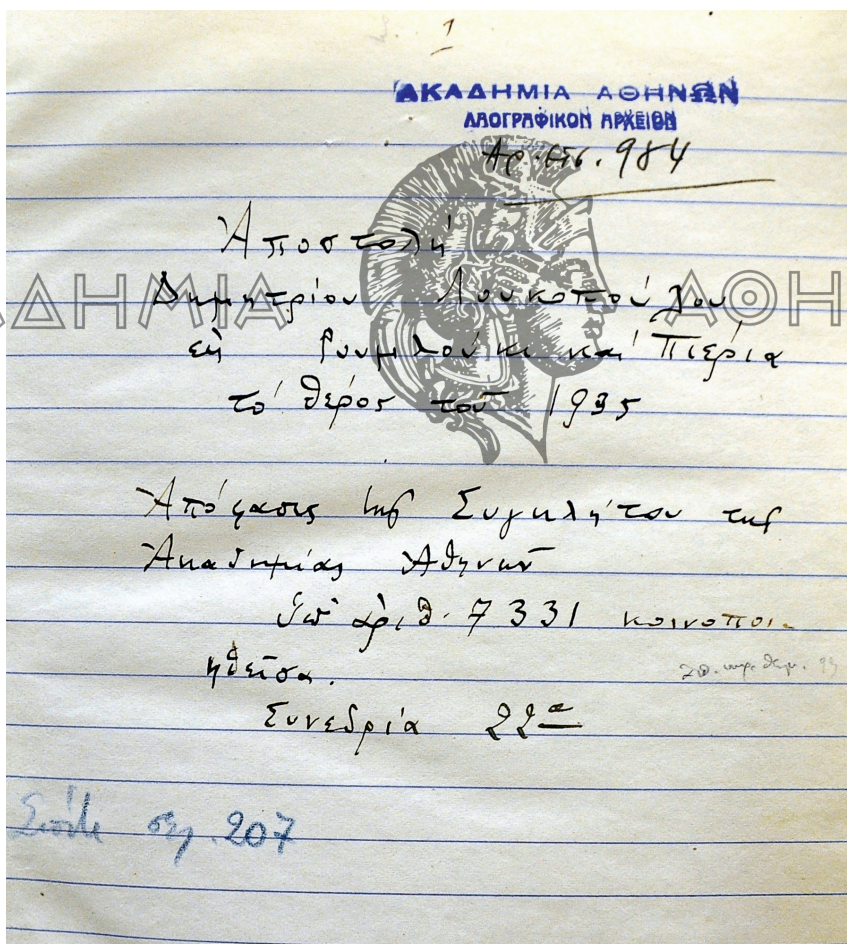 1
ΑΚΑΔΗΜΙΑ ΑΘΗΝΩΝ
ΛΑΟΓΡΑΦΙΚΟΝ ΑΡΧΕΙΟΝ
Αρ. εισ. 984
Ἀποστολή
Δημητρίου Λουκοπούλου
εἰς Ρουμλούκι καὶ Πιερία
τὸ θέρος τοῦ 1935
ΑΔΗΜΙΑ ΑΘΗ
Ἀπόφασις τῆς Συγκλήτου τῆς
Ἀκαδημίας Ἀθηνῶν
ὑπ' ἀριθ. 7331 κοινοποι-
ηθεῖσα.
Συνεδρία 22α
σελ. 207